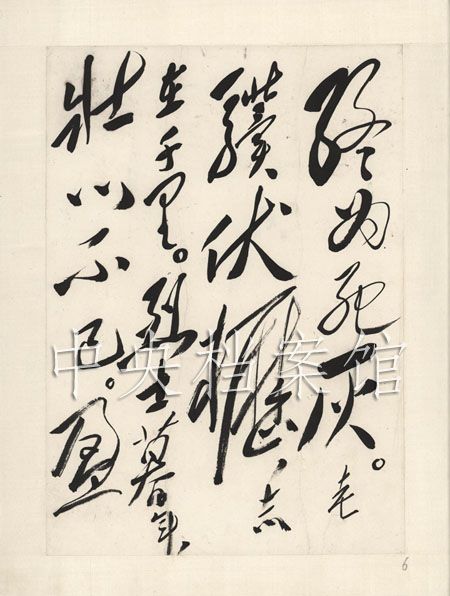 终为死灰。老
骥伏櫪，志
在千里。烈士暮年，
壮心不已。盈
中央档案馆
6